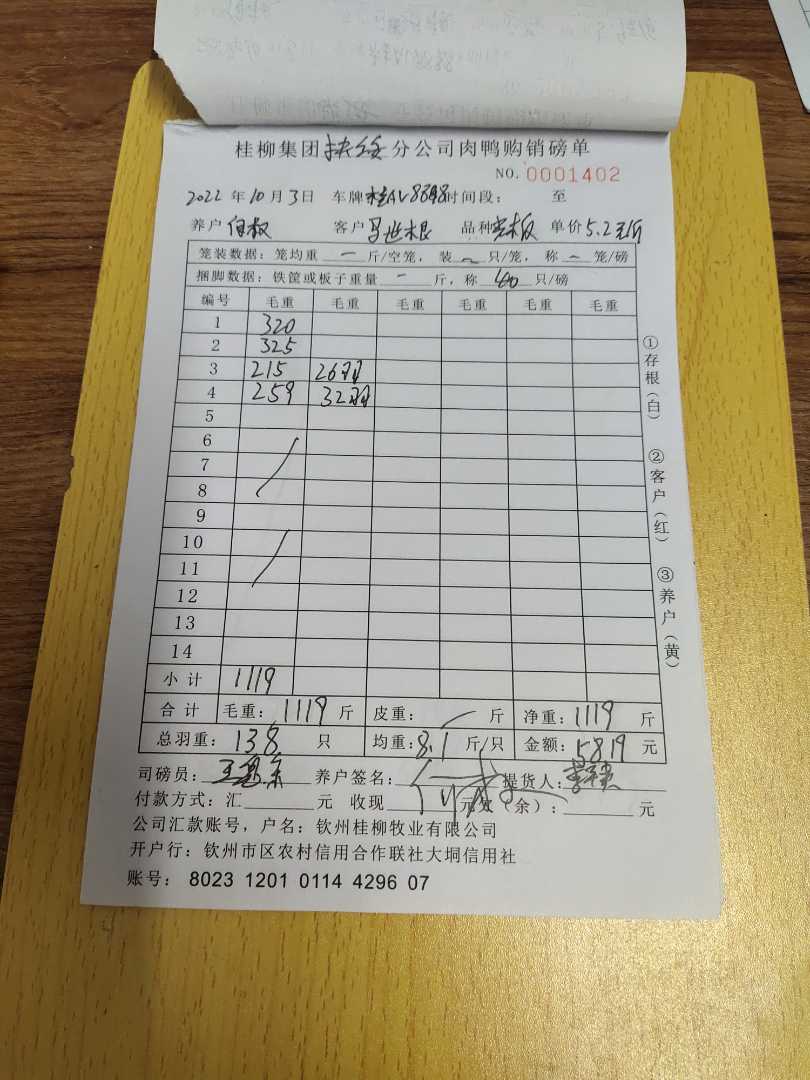 桂柳集团扶绥分公司肉鸭购销磅单
NO. 0001402
2022 年 10 月 3 日 车牌 桂AV 时间段: 至
养户 客户 马世根 品种 单价 5.2元/斤
笼装数据: 笼均重 一 斤/空笼, 装 ~ 只/笼, 称 ~ 笼/磅
捆脚数据: 铁筐或板子重量 一 斤, 称 40 只/磅
编号 毛重 毛重 毛重 毛重 毛重 毛重
1 320
2 325
3 215 26羽
4 259 32羽
5
6
7
8
9
10
11
12
13
14
小计 1119
合计 毛重: 1119 斤 皮重: / 斤 净重: 1119 斤
总羽重: 138 只 均重: 8.1 斤/只 金额: 5819 元
司磅员: 养户签名: 提货人:
付款方式: 汇 元 收现 元欠(余): 元
公司汇款账号, 户名: 钦州桂柳牧业有限公司
开户行: 钦州市区农村信用合作联社大垌信用社
账号: 8023 1201 0114 4296 07
①存根(白)
②客户(红)
③养户(黄)